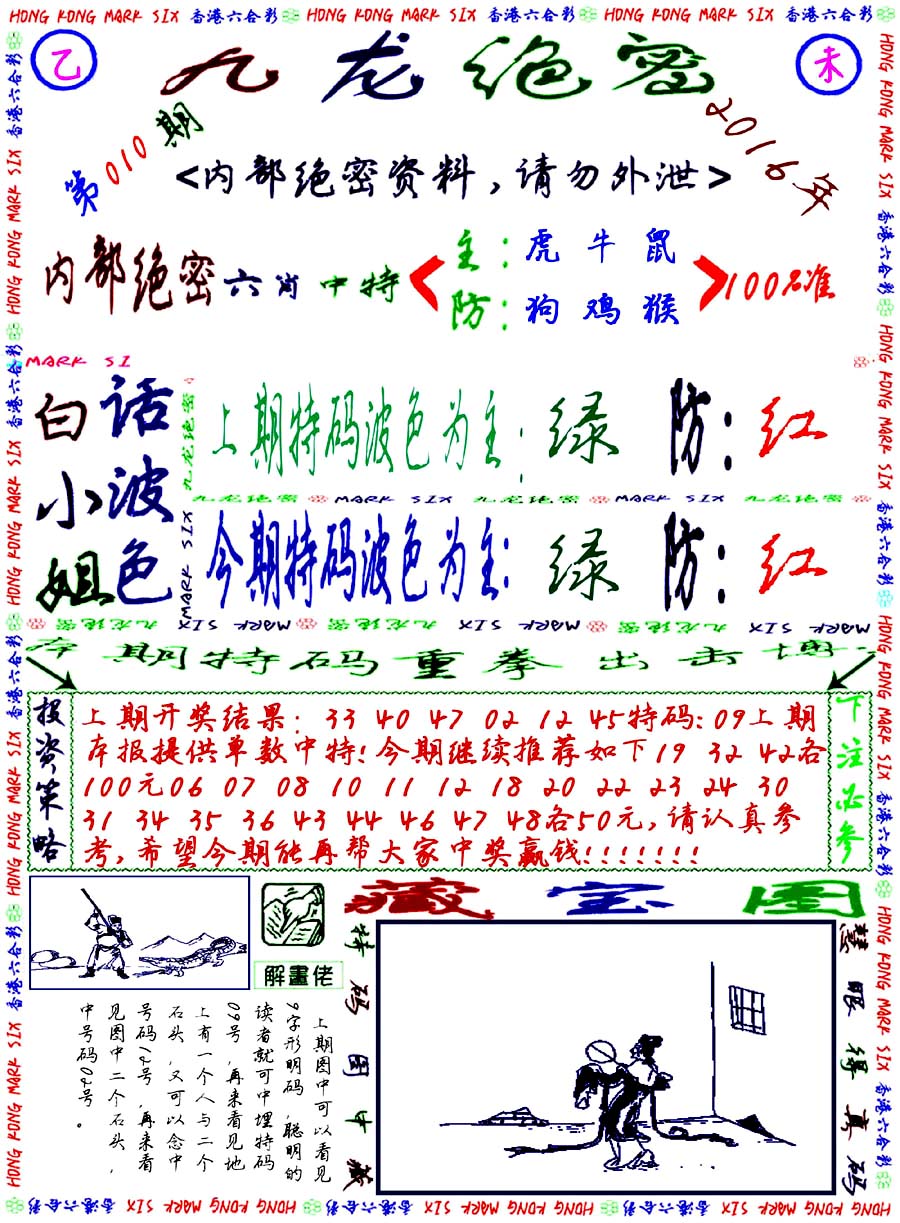 HONG KONG MARK SIX 香港六合彩 HONG KONG MARK SIX 香港六合彩 HONG KONG MARK SIX 香港六合彩
乙
九龙绝密
未
第010期
2016年
<内部绝密资料,请勿外泄>
内部绝密六肖中特
主:虎牛鼠
防:狗鸡猴
100%准
MARK SI
白话
小波
姐色
上期特码波色为主:绿 防:红
九龙绝密 MARK SIX 九龙绝密 MARK SIX 九龙绝密
今期特码波色为主:绿 防:红
九龙绝密
MARK SIX
MARK SIX 九龙绝密 MARK SIX 九龙绝密 MARK SIX 九龙绝密
本期特码重拳出击博
投资策略
上期开奖结果: 33 40 47 02 12 45特码:09上期
本报提供单数中特!今期继续推荐如下19 32 42各
100元06 07 08 10 11 12 18 20 22 23 24 30
31 34 35 36 43 44 46 47 48各50元,请认真参
考,希望今期能再帮大家中奖赢钱!!!!!!!
下注必参
解畫佬
藏宝图
特码图中藏
慧眼得真码
上期图中可以看见
9字形明码,聪明的
读者就可中埋特码
09号,再来看见地
上有一个人与二个
石头,又可以念中
号码12号,再来看
见图中二个石头,
中号码02号。
HONG KONG MARK SIX 香港六合彩 HONG KONG MARK SIX 香港六合彩 HONG KONG MARK SIX 香港六合彩 HONG KONG MARK SIX 香港六合彩
HONG KONG MARK SIX 香港六合彩 HONG KONG MARK SIX 香港六合彩 HONG KONG MARK SIX 香港六合彩 HONG KONG MARK SIX 香港六合彩
HONG KONG MARK SIX 香港六合彩 HONG KONG MARK SIX 香港六合彩 HONG KONG MARK SIX 香港六合彩